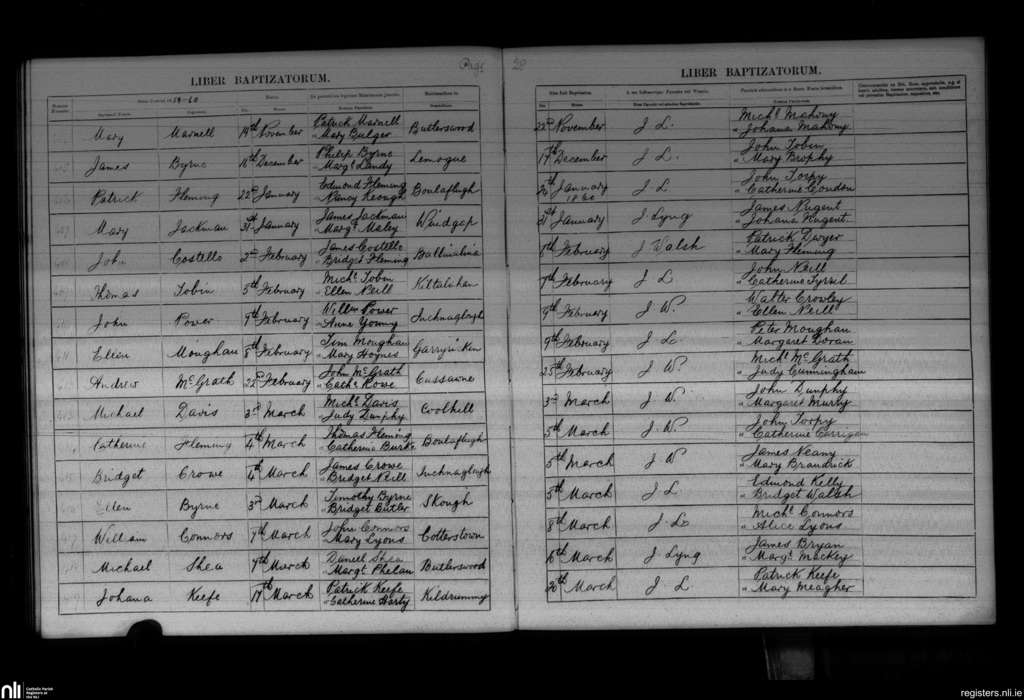 Page 28
LIBER BAPTIZATORUM.
LIBER BAPTIZATORUM.
1859-60
Mary Marnell 19th November Patrick Marnell Butlerswood 22nd November J L. Michl Mahony
" Mary Bulger " Johana Mahony
James Byrne 16th December Philip Byrne Lemogue 17th December J L. John Tobin
" Margt Landy " Mary Brophy
Patrick Fleming 22nd January Edmond Fleming Boulaflugh 26th January J L John Torpy
" Nancy Keough 1860 " Catherine Condon
Mary Jackman 31st January James Jackman Windgap 31st January J Lyng James Nugent
" Margt Maley " Johana Nugent
John Costello 2nd February James Costello 8th February J Walsh Patrick Dwyer
" Bridget Fleming " Mary Fleming
Thomas Tobin 5th February Michl Tobin Kiltalshan 7th February J L John Neill
" Ellen Neill " Catherine Tyrrel
John Power 9th February Willm Power Inchnaglough 9th February J W. Walter Crowley
" Anne Young " Ellen Neill
Ellen Moughan 8th February Tim Moughan Garryrickin 9th February J L. Peter Moughan
" Mary Hoynes " Margaret Doran
Andrew McGrath 22nd February John McGrath Cussawne 25th February J W. Michl McGrath
" Cathe Rowe " Judy Cunningham
Michael Davis 3rd March Michl Davis Coolhill 3rd March J W. John Dunphy
" Judy Dunphy " Margaret Murry
Catherine Fleming 4th March Thomas Fleming Boulaflugh 5th March J W. John Torpy
" Catherine Burke " Catherine Corrigan
Bridget Crowe 4th March James Crowe Inchnaglough 5th March J W James Neany
" Bridget Neill " Mary Brandrick
Ellen Byrne 3rd March Timothy Byrne Skough 5th March J L Edmond Kelly
" Bridget Butler " Bridget Walsh
William Connors 7th March John Connors Cotterstown 8th March J L Michl Connors
" Mary Lyons " Alice Lyons
Michael Shea 9th March Daniell Shea Butlerswood 16th March J Lyng James Bryan
" Margt Phelan " Margt Mackey
Johana Keefe 17th March Patrick Keefe Kildrummy 20th March J L Patrick Keefe
" Catherine Harty " Mary Meagher
nli Catholic Parish
Registers at
the NLI
registers.nli.ie